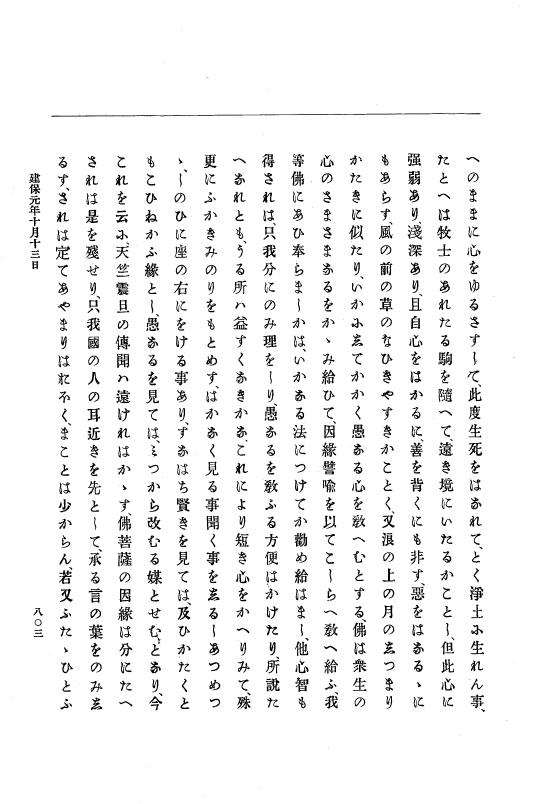 へのままに心をゆるさすして、此度生死をはなれて、とく淨土に生れん事、
たとへは牧士のあれたる駒を隨へて、遠き境にいたるかことし、但此心に
强弱あり、淺深あり、且自心をはかるに、善を背くにも非す、惡をはなるゝに
もあらす、風の前の草のなひきやすきかことく、又浪の上の月のしつまり
かたきに似たり、いかにしてかかく愚なる心を敎へむとする、佛は衆生の
心のさまさまなるをかゝみ給ひて、因緣譬喩を以てこしらへ敎へ給ふ、我
等佛にあひ奉らましかは、いかなる法につけてか勸め給はまし、他心智も
得されは只我分にのみ理をしり、愚なるを敎ふる方便はかけたり、所說た
へなれとも、うる所ハ益すくなきかな、これにより短き心をかへりみて、殊
更にふかきみのりをもとめす、はかなく見る事聞く事をしるしあつめつ
ゝ、しのひに座の右にをける事あり、すなはち賢きを見ては、及ひかたくと
もこひねかふ緣とし愚なるを見ては、みつから改むる媒とせむとなり、今
これを云に、天竺震旦の傳聞ハ遠けれはかゝす、佛菩薩の因緣は分にたへ
されは是を殘せり、只我國の人の耳近きを先として、承る言の葉をのみし
るす、されは定てあやまりはおほく、まことは少からん、若又ふたゝひとふ
建保元年十月十三日
八〇三